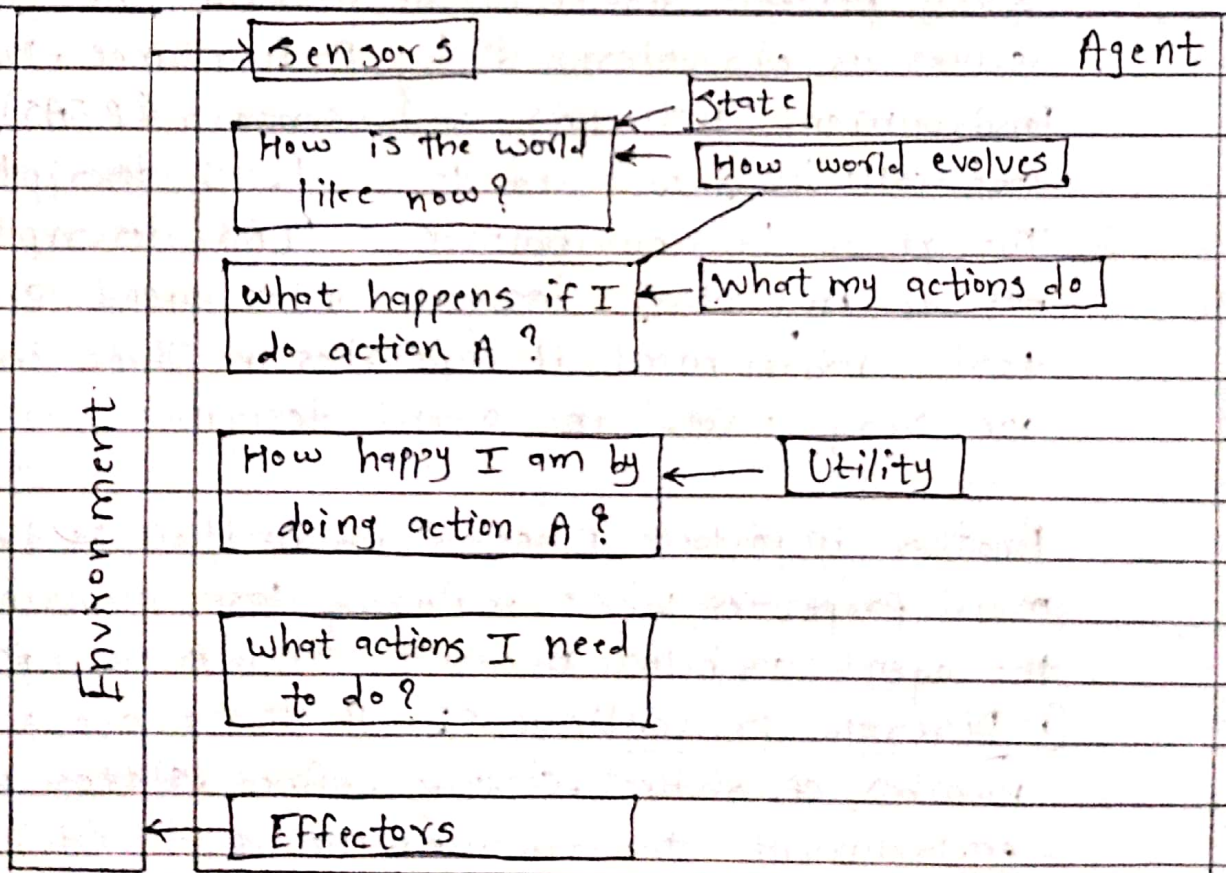 Sensors
Agent
State
How is the world
like now?
How world evolves
What happens if I
do action A ?
What my actions do
How happy I am by
doing action A ?
Utility
What actions I need
to do ?
Environment
Effectors